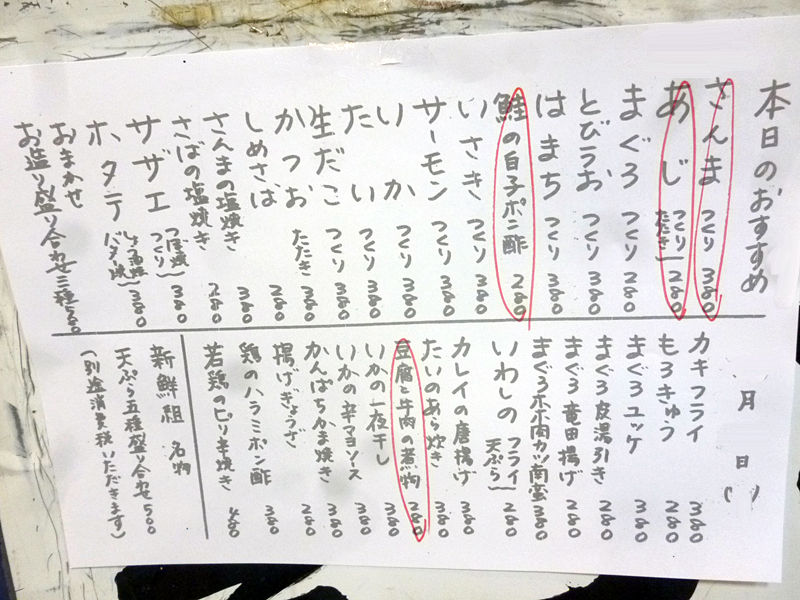 本日のおすすめ
さんま つくり 380
あじ つくり たたき 280
まぐろ つくり 280
とびうお つくり 380
はまち つくり 380
鮭の白子ポン酢 280
いさき つくり 380
サーモン つくり 380
いか つくり 380
たい つくり 380
生だこ つくり 380
かつお たたき 380
しめさば 280
さんまの塩焼き 380
さばの塩焼き 280
サザエ つぼ焼 つくり 380
ホタテ しょう油焼 バター焼 380
おまかせ
お造り盛り合わせ三種580
月 日( )
カキフライ 380
もろきゅう 280
まぐろユッケ 380
まぐろ皮湯引き 280
まぐろ竜田揚げ 280
まぐろホホ肉カツ南蛮 380
いわしの フライ 天ぷら 280
カレイの唐揚げ 380
たいのあら炊き 380
豆腐と牛肉の煮物 280
いかの一夜干し 380
いかの辛マヨソース 380
かんぱちかま焼き 380
揚げぎょうざ 280
鶏のハラミポン酢 380
若鶏のピリ辛焼き 480
新鮮組 名物
天ぷら五種盛り合わせ 500
(別途消費税いただきます)